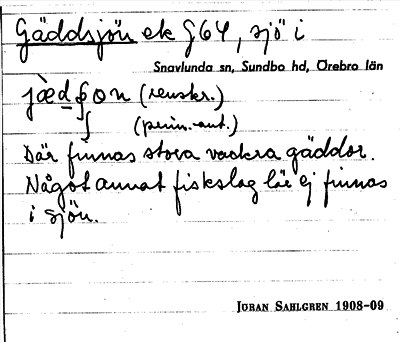 Gäddsjön ek G64, sjö i
Snavlunda sn, Sundbo hd, Örebro län
(renskr.)
(prim.-ant.)
Där finnas stora vackra gäddor.
Något annat fiskslag lär ej finnas
i sjön.
JÖRAN SAHLGREN 1908-09